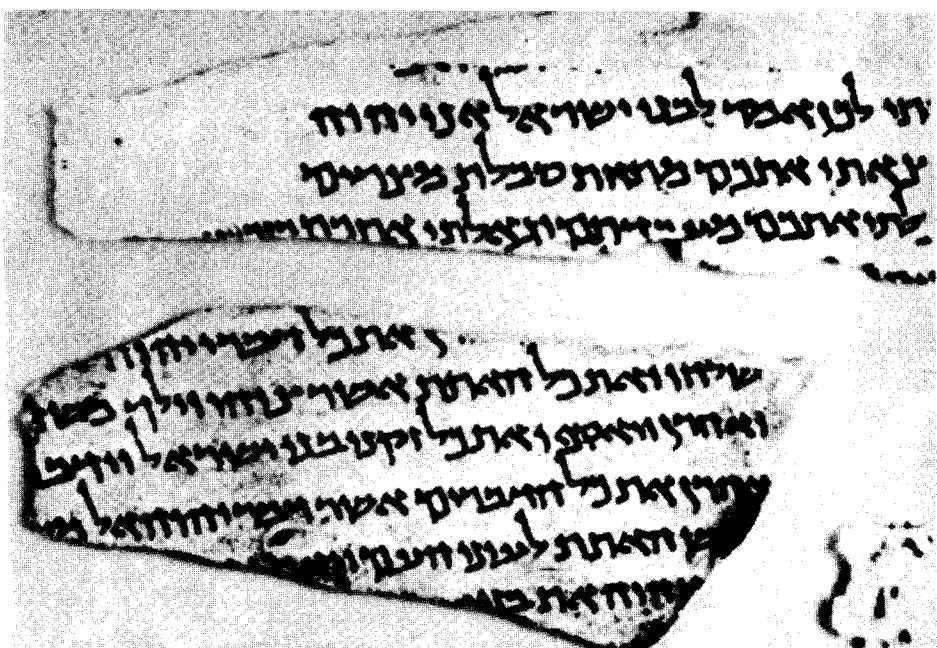 תי לכן אמר לבני ישראל אני יהוה
צאתי אתכם מתחת סבלת מצרים
לתי אתכם וגאלתי אתכם
את כל דברי יהוה
שלחו ואת כל האתת אשר צוהו וילך משה
ואהרן ויאספו את כל זקני בני ישראל וידבר
אהרן את כל הדברים אשר דבר יהוה אל
האתת לעיני העם
יהוה את